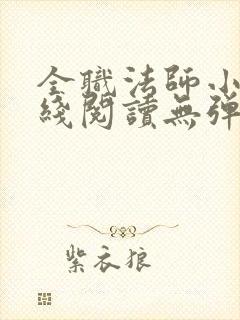 全職法師小
綫閱讀無彈
紫衣狼